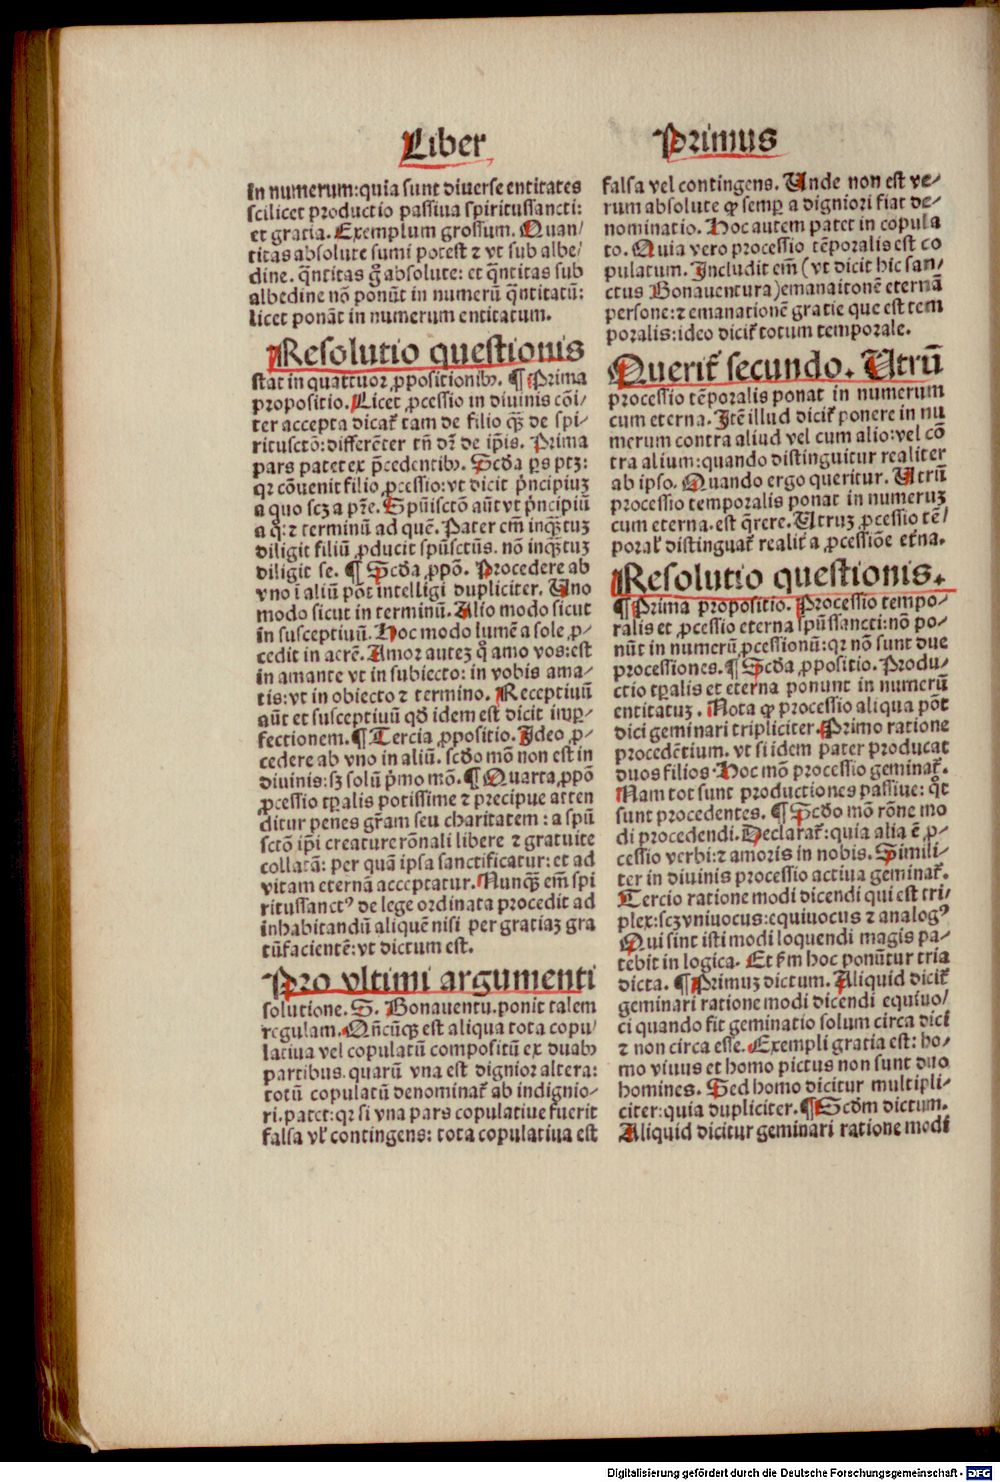 Liber
Primus
in numerum: quia sunt diuerse entitates
scilicet productio passiua spiritussancti:
et gratia. Exemplum grossum. Quan/
titas absolute sumi potest ⁊ vt sub albe/
dine. q̃ntitas g̃ absolute: et q̃ntitas sub
albedine nõ ponũt in numerũ q̃ntitatũ:
licet ponãt in numerum entitatum.
¶Resolutio questionis
stat in quattuor ꝓpositionibꝰ. ¶ Prima
propositio. Licet ꝓcessio in diuinis cõi/
ter accepta dicat᷑ tam de filio qꝫ̃ de spi/
ritusctõ: differẽter tñ dr̃ de ip̃is. Prima
pars patet ex p̃cedentibꝰ. Scd̃a ꝑs ptꝫ:
qꝛ cõuenit filio ꝓcessio: vt dicit p̃ncipiuꝫ
a quo scꝫ a pr̃e. Spũisctõ aũt vt p̃ncipiũ
a q̊: ⁊ terminũ ad quẽ. Pater em̃ inqꝫ̃tuꝫ
diligit filiũ ꝓducit spũsctũs. nõ inqꝫ̃tuꝫ
diligit se. ¶ Scd̃a ꝓpõ. Procedere ab
vno ĩ aliũ põt intelligi dupliciter. Uno
modo sicut in terminũ. Alio modo sicut
in susceptiuũ. Hoc modo lumẽ a sole ꝓ/
cedit in aerẽ. Amor auteꝫ q̊ amo vos: est
in amante vt in subiecto: in vobis ama/
tis: vt in obiecto ⁊ termino. Receptiuũ
aũt et susceptiuũ qd̃ idem est dicit imꝑ/
fectionem. ¶ Tercia ꝓpositio. Ideo ꝓ/
cedere ab vno in aliũ. scd̃o mõ non est in
diuinis: sꝫ solũ p̃mo mõ. ¶ Quarta ꝓpõ
ꝓcessio tꝑalis potissime ⁊ precipue atten
ditur penes gr̃am seu charitatem: a spũ
sctõ ip̃i creature rõnali libere ⁊ gratuite
collatã: per quã ipsa sanctificatur: et ad
vitam eternã acceptatur. Nunqꝫ̃ em̃ spi
ritussanctꝰ de lege ordinata procedit ad
inhabitandũ aliquẽ nisi per gratiaꝫ gra
tũfacientẽ: vt dictum est.
Pro vltimi argumenti
solutione. S. Bonauentu. ponit talem
regulam. Qñcũqꝫ est aliqua tota copu/
latiua vel copulatũ compositũ ex duabꝰ
partibus. quarũ vna est dignior altera:
totũ copulatũ denominat᷑ ab indignio/
ri. patet: qꝛ si vna pars copulatiue fuerit
falsa vl̕ contingens: tota copulatiua est
falsa vel contingens. Unde non est ve/
rum absolute ꝙ semꝑ a digniori fiat de/
nominatio. Hoc autem patet in copula
to. Quia vero processio tẽporalis est co
pulatum. Includit em̃ (vt dicit hic san/
ctus Bonauentura) emanaitonẽ eternã
persone: ⁊ emanationẽ gratie que est tem
poralis: ideo dicit᷑ totum temporale.
Querit᷑ secundo. Utrũ
processio tẽporalis ponat in numerum
cum eterna. Itẽ illud dicit᷑ ponere in nu
merum contra aliud vel cum alio: vel cõ
tra alium: quando distinguitur realiter
ab ipso. Quando ergo queritur. Utrũ
processio temporalis ponat in numeruꝫ
cum eterna. est q̃rere. Utruꝫ ꝓcessio tẽ/
poral̕ distinguat᷑ realit᷑ a ꝓcessiõe et᷑na.
¶Resolutio questionis.
¶Prima propositio. Processio tempo/
ralis et ꝓcessio eterna spũssancti: nõ po/
nũt in numerũ ꝓcessionũ: qꝛ nõ sunt due
processiones. ¶ Scd̃a ꝓpositio. Produ/
ctio tꝑalis et eterna ponunt in numerũ
entitatuꝫ. Nota ꝙ processio aliqua põt
dici geminari tripliciter. Primo ratione
procedẽtium. vt si idem pater producat
duos filios. Hoc mõ processio geminat᷑.
Nam tot sunt productiones passiue: qt̊
sunt procedentes. ¶ Scd̃o mõ rõne mo
di procedendi. Declarat᷑: quia alia ẽ ꝓ/
cessio verbi: ⁊ amoris in nobis. Simili/
ter in diuinis processio actiua geminat᷑.
Tercio ratione modi dicendi qui est tri/
plex: scꝫ vniuocus: equiuocus ⁊ analogꝰ
Qui sint isti modi loquendi magis pa/
tebit in logica. Et s̃m hoc ponũtur tria
dicta. ¶ Primuꝫ dictum. Aliquid dicit᷑
geminari ratione modi dicendi equiuo/
ci quando fit geminatio solum circa dici
⁊ non circa esse. Exempli gratia est: ho/
mo viuus et homo pictus non sunt duo
homines. Sed homo dicitur multipli/
citer: quia dupliciter. ¶ Scd̃m dictum.
Aliquid dicitur geminari ratione modi
Digitalisierung gefördert durch die Deutsche Forschungsgemeinschaft - DFG